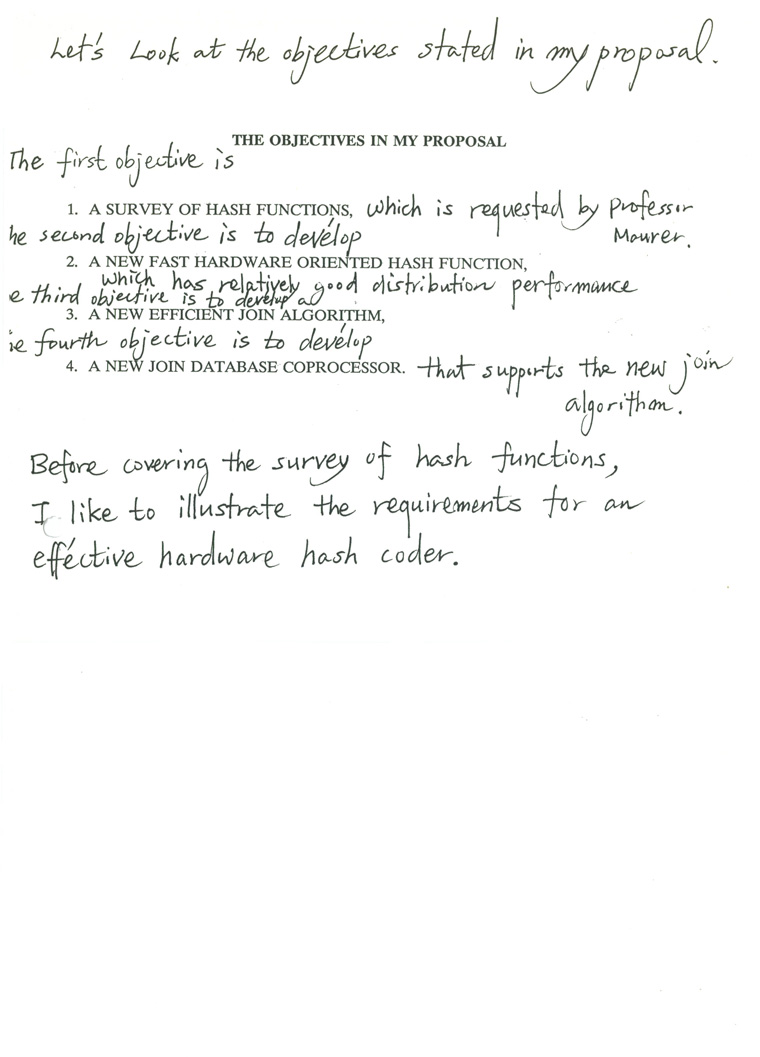 Let's Look at the objectives stated in my proposal.
THE OBJECTIVES IN MY PROPOSAL
The first objective is
1. A SURVEY OF HASH FUNCTIONS, which is requested by Professor
Maurer.
he second objective is to develop
2. A NEW FAST HARDWARE ORIENTED HASH FUNCTION,
which has relatively good distribution performance
e third objective is to develop a
3. A NEW EFFICIENT JOIN ALGORITHM,
ie fourth objective is to develop
4. A NEW JOIN DATABASE COPROCESSOR. that supports the new join
algorithm.
Before covering the survey of hash functions,
I like to illustrate the requirements for an
effective hardware hash coder.